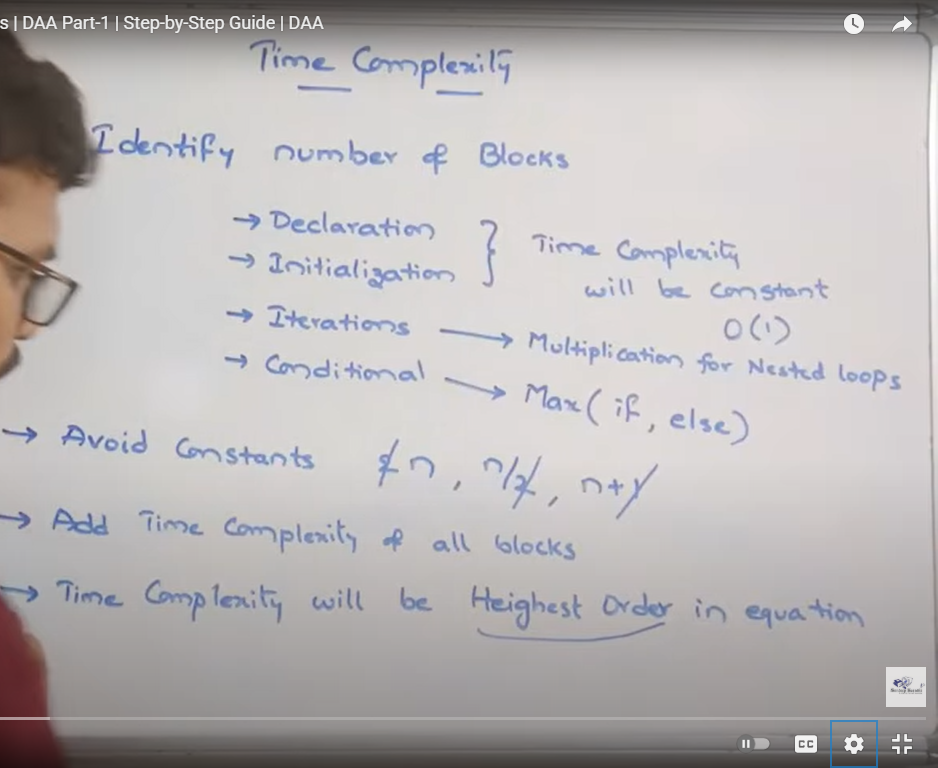 s | DAA Part-1 | Step-by-Step Guide | DAA
Time Complexity
Identify number of Blocks
→ Declaration } Time Complexity
→ Initialization will be constant
O(1)
→ Iterations → Multiplication for Nested loops
→ Conditional → Max( if, else)
→ Avoid Constants n, n/2, n+1
→ Add Time Complexity of all blocks
→ Time Complexity will be Heighest Order in equation
CC